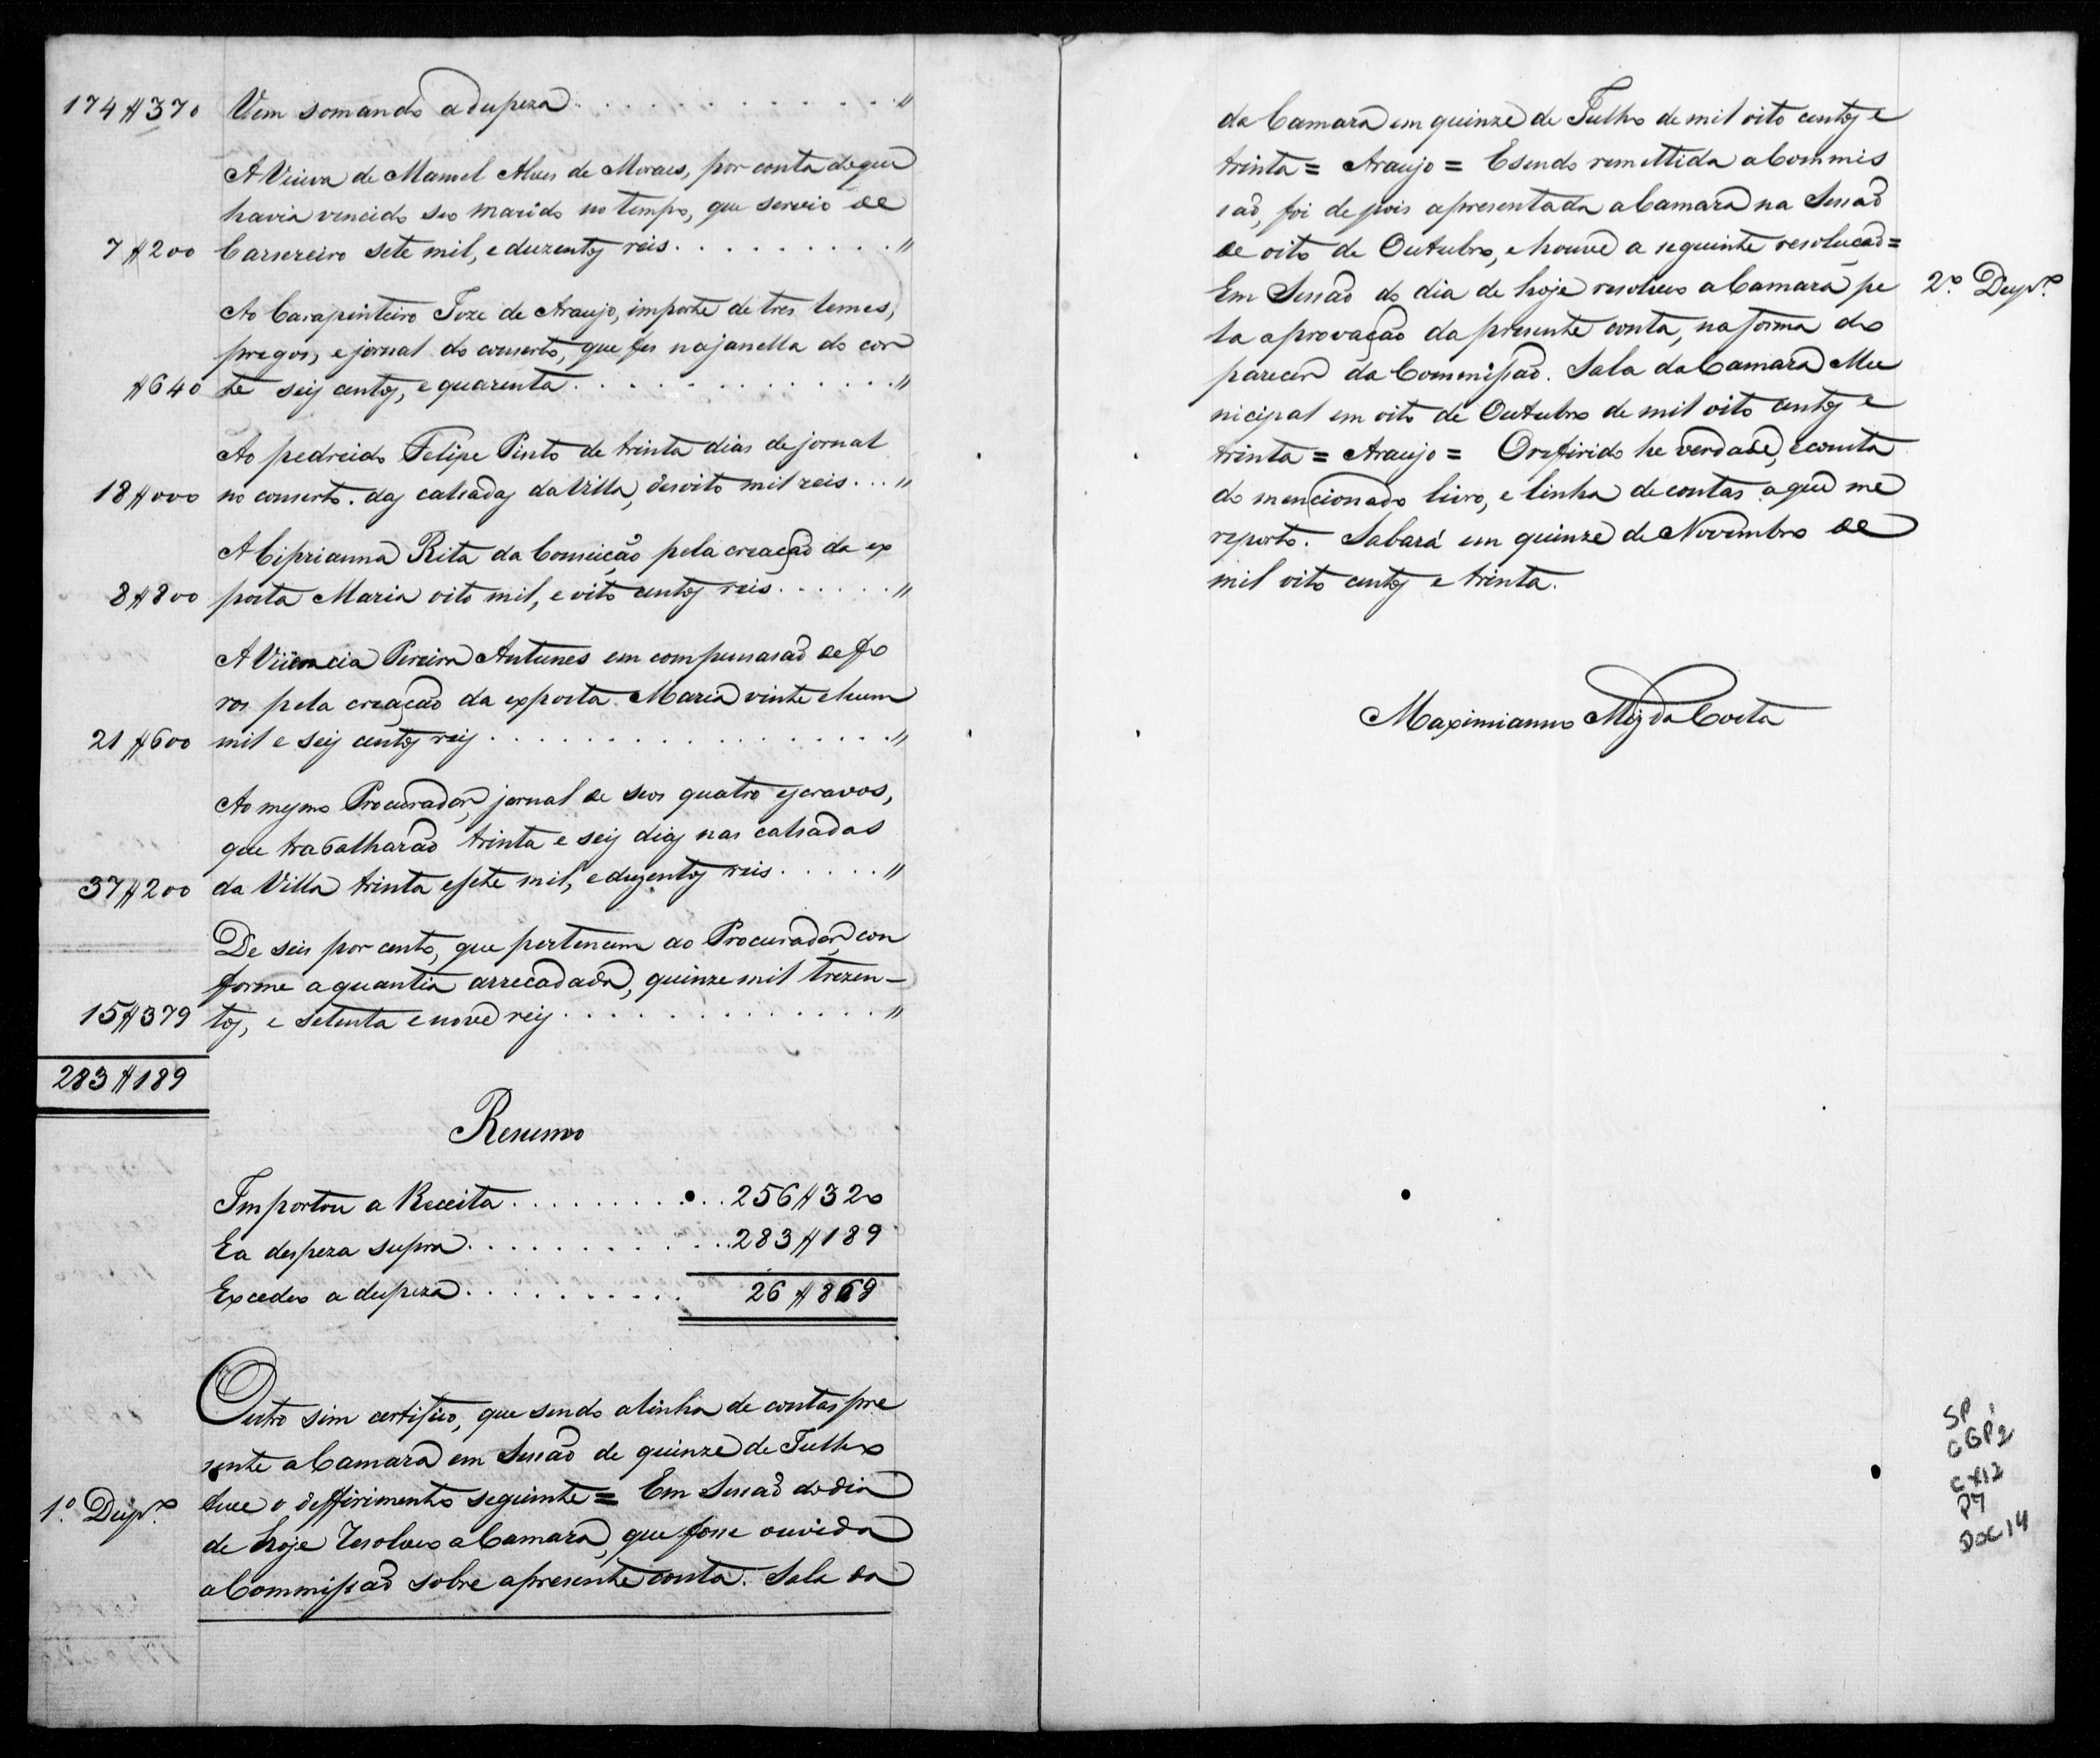 174$370 Vem somando a despeza . . . . . . . . . . . . "
A Viuva de Manoel Alves de Moraes, por conta do que
havia vencido seo marido no tempo, que servio de
7$200 Carsereiro sete mil, e duzentos reis . . . . . . . . . "
Ao Carapinteiro Joze de Araujo, importe de tres lemes,
pregos, e jornal do conserto, que fes na janella do cor
$640 te seis centos, e quarenta . . . . . . . . . . . . . "
Ao pedreido Felipe Pinto de trinta dias de jornal
18$000 no conserto das calsadas da Villa, desoito mil reis . . . "
A Ciprianna Rita da Conseição pela creação da ex
8$800 posta Maria oito mil, e oito centos reis . . . . . . "
A Pereira Antunes em compensasaõ de fo
ros pela creação da exposta Maria vinte e hum
21$600 mil e seis centos reis . . . . . . . . . . . . . . . . . "
Ao mesmo Procurador, jornal de seos quatro escravos,
que trabalharaõ trinta e seis dias nas calsadas
37$200 da Villa trinta e sete mil, e duzentos reis . . . . . "
De seis por cento, que pertencem ao Procurador, con
forme a quantia arrecadada, quinze mil trezen-
15$379 tos, e setenta e nove reis . . . . . . . . . . . . . "
283$189
Resumo
Importou a Receita . . . . . . . . . . . . 256$320
E a despeza supra . . . . . . . . . . . . 283$189
Excedeo a despeza . . . . . . . . . . . 26$869
Outro sim certifico, que sendo a linha de contas pre
sente a Camara em Sessaõ de quinze de Julho
1.º Desp.º teve o defferimento seguinte = Em Sessaõ do dia
de hoje resolveo a Camara, que fosse ouvida
a Commissaõ sobre a presente conta. Sala da
da Camara em quinze de Julho de mil oito centos e
trinta = Araujo = E sendo remettida a Commis
saõ, foi de pois apresentada a Camara na Sessaõ
de oito de Outubro, e houve a seguinte resolucaõ =
Em Sessaõ do dia de hoje resolveo a Camara pe 2.º Desp.º
la aprovação da presente conta, na forma do
parecer da Commissaõ. Sala da Camara Mu
nicipal em oito de Outubro de mil oito centos e
trinta = Araujo = O refirido he verdade, e consta
do mencionado livro, e linha de contas a que me
reporto. Sabará em quinze de Novembro de
mil oito centos e trinta.
Maximianno Miz da Costa
SP
CGP2
CX12
P7
DOC14